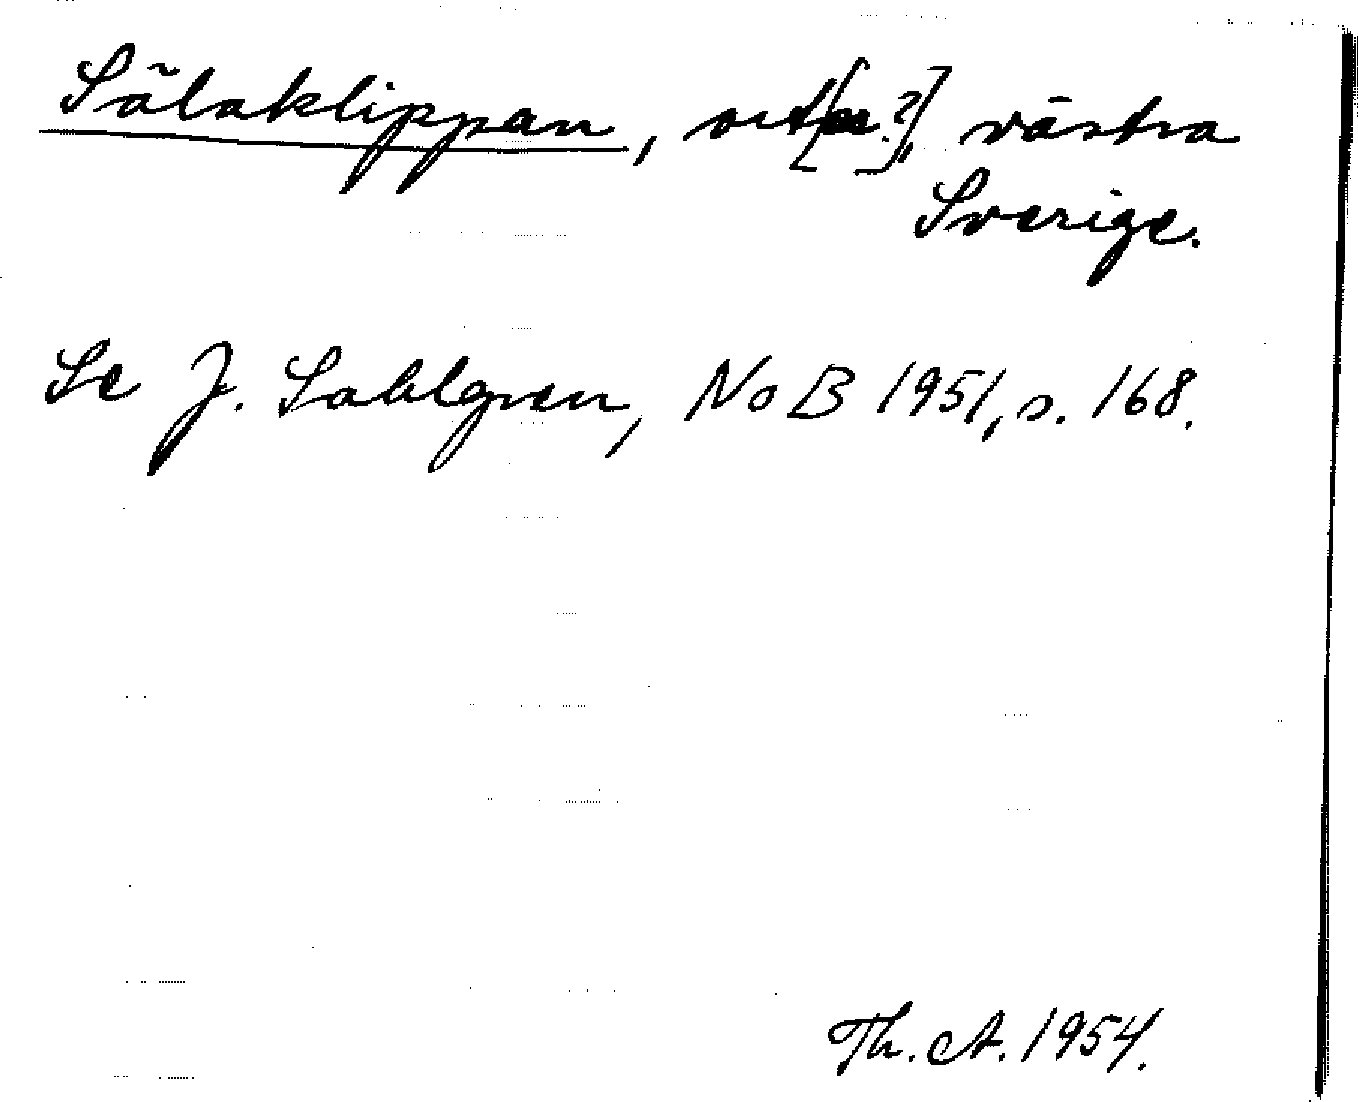 Sälaklippan, ort[en?], västra
Sverige.
Se J. Sahlgren, NoB 1951, s. 168.
Th. A. 1954.